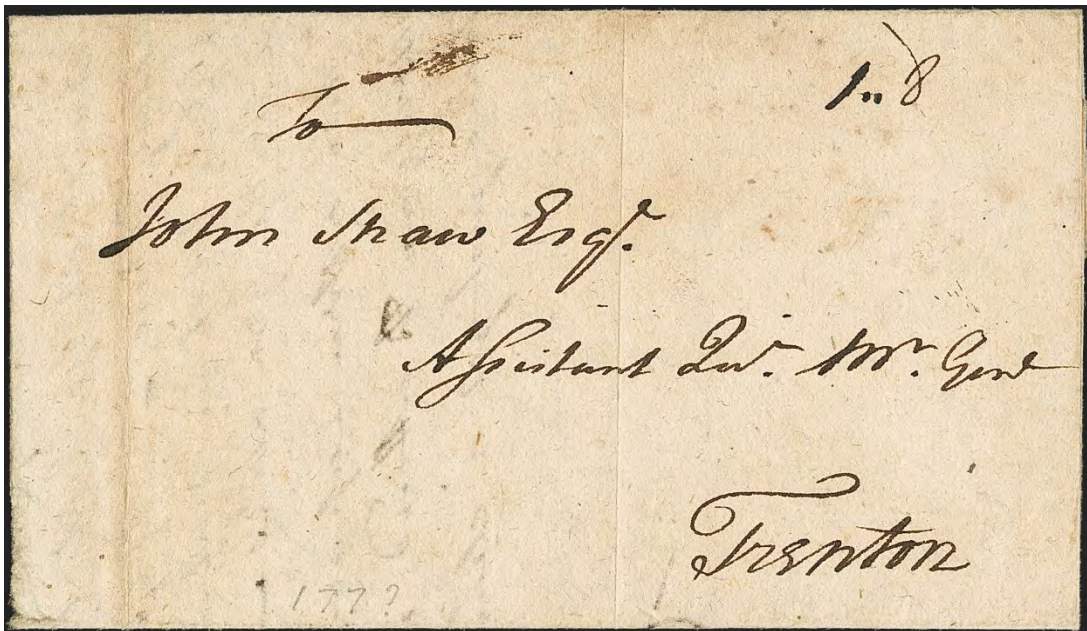 1" 8
To
John Shaw Esqr.
Assistant Qr. Mr. Genl
Trenton
177?